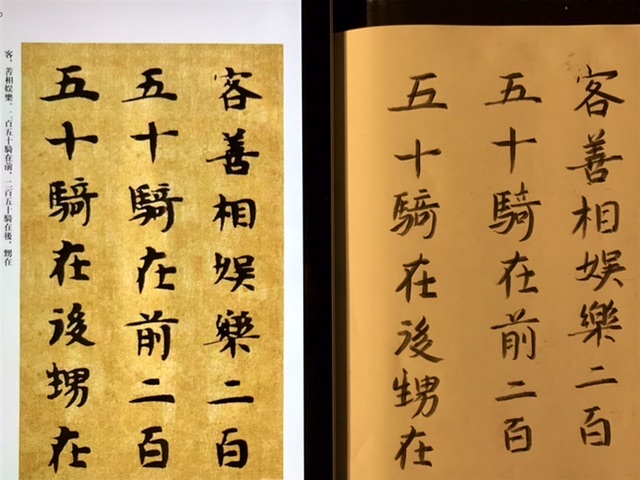 客，善相娱樂。二百五十騎在前，二百五十騎在後，甥在
客善相娱樂二百
五十騎在前二百
五十騎在後甥在
客善相娱樂二百
五十騎在前二百
五十騎在後甥在